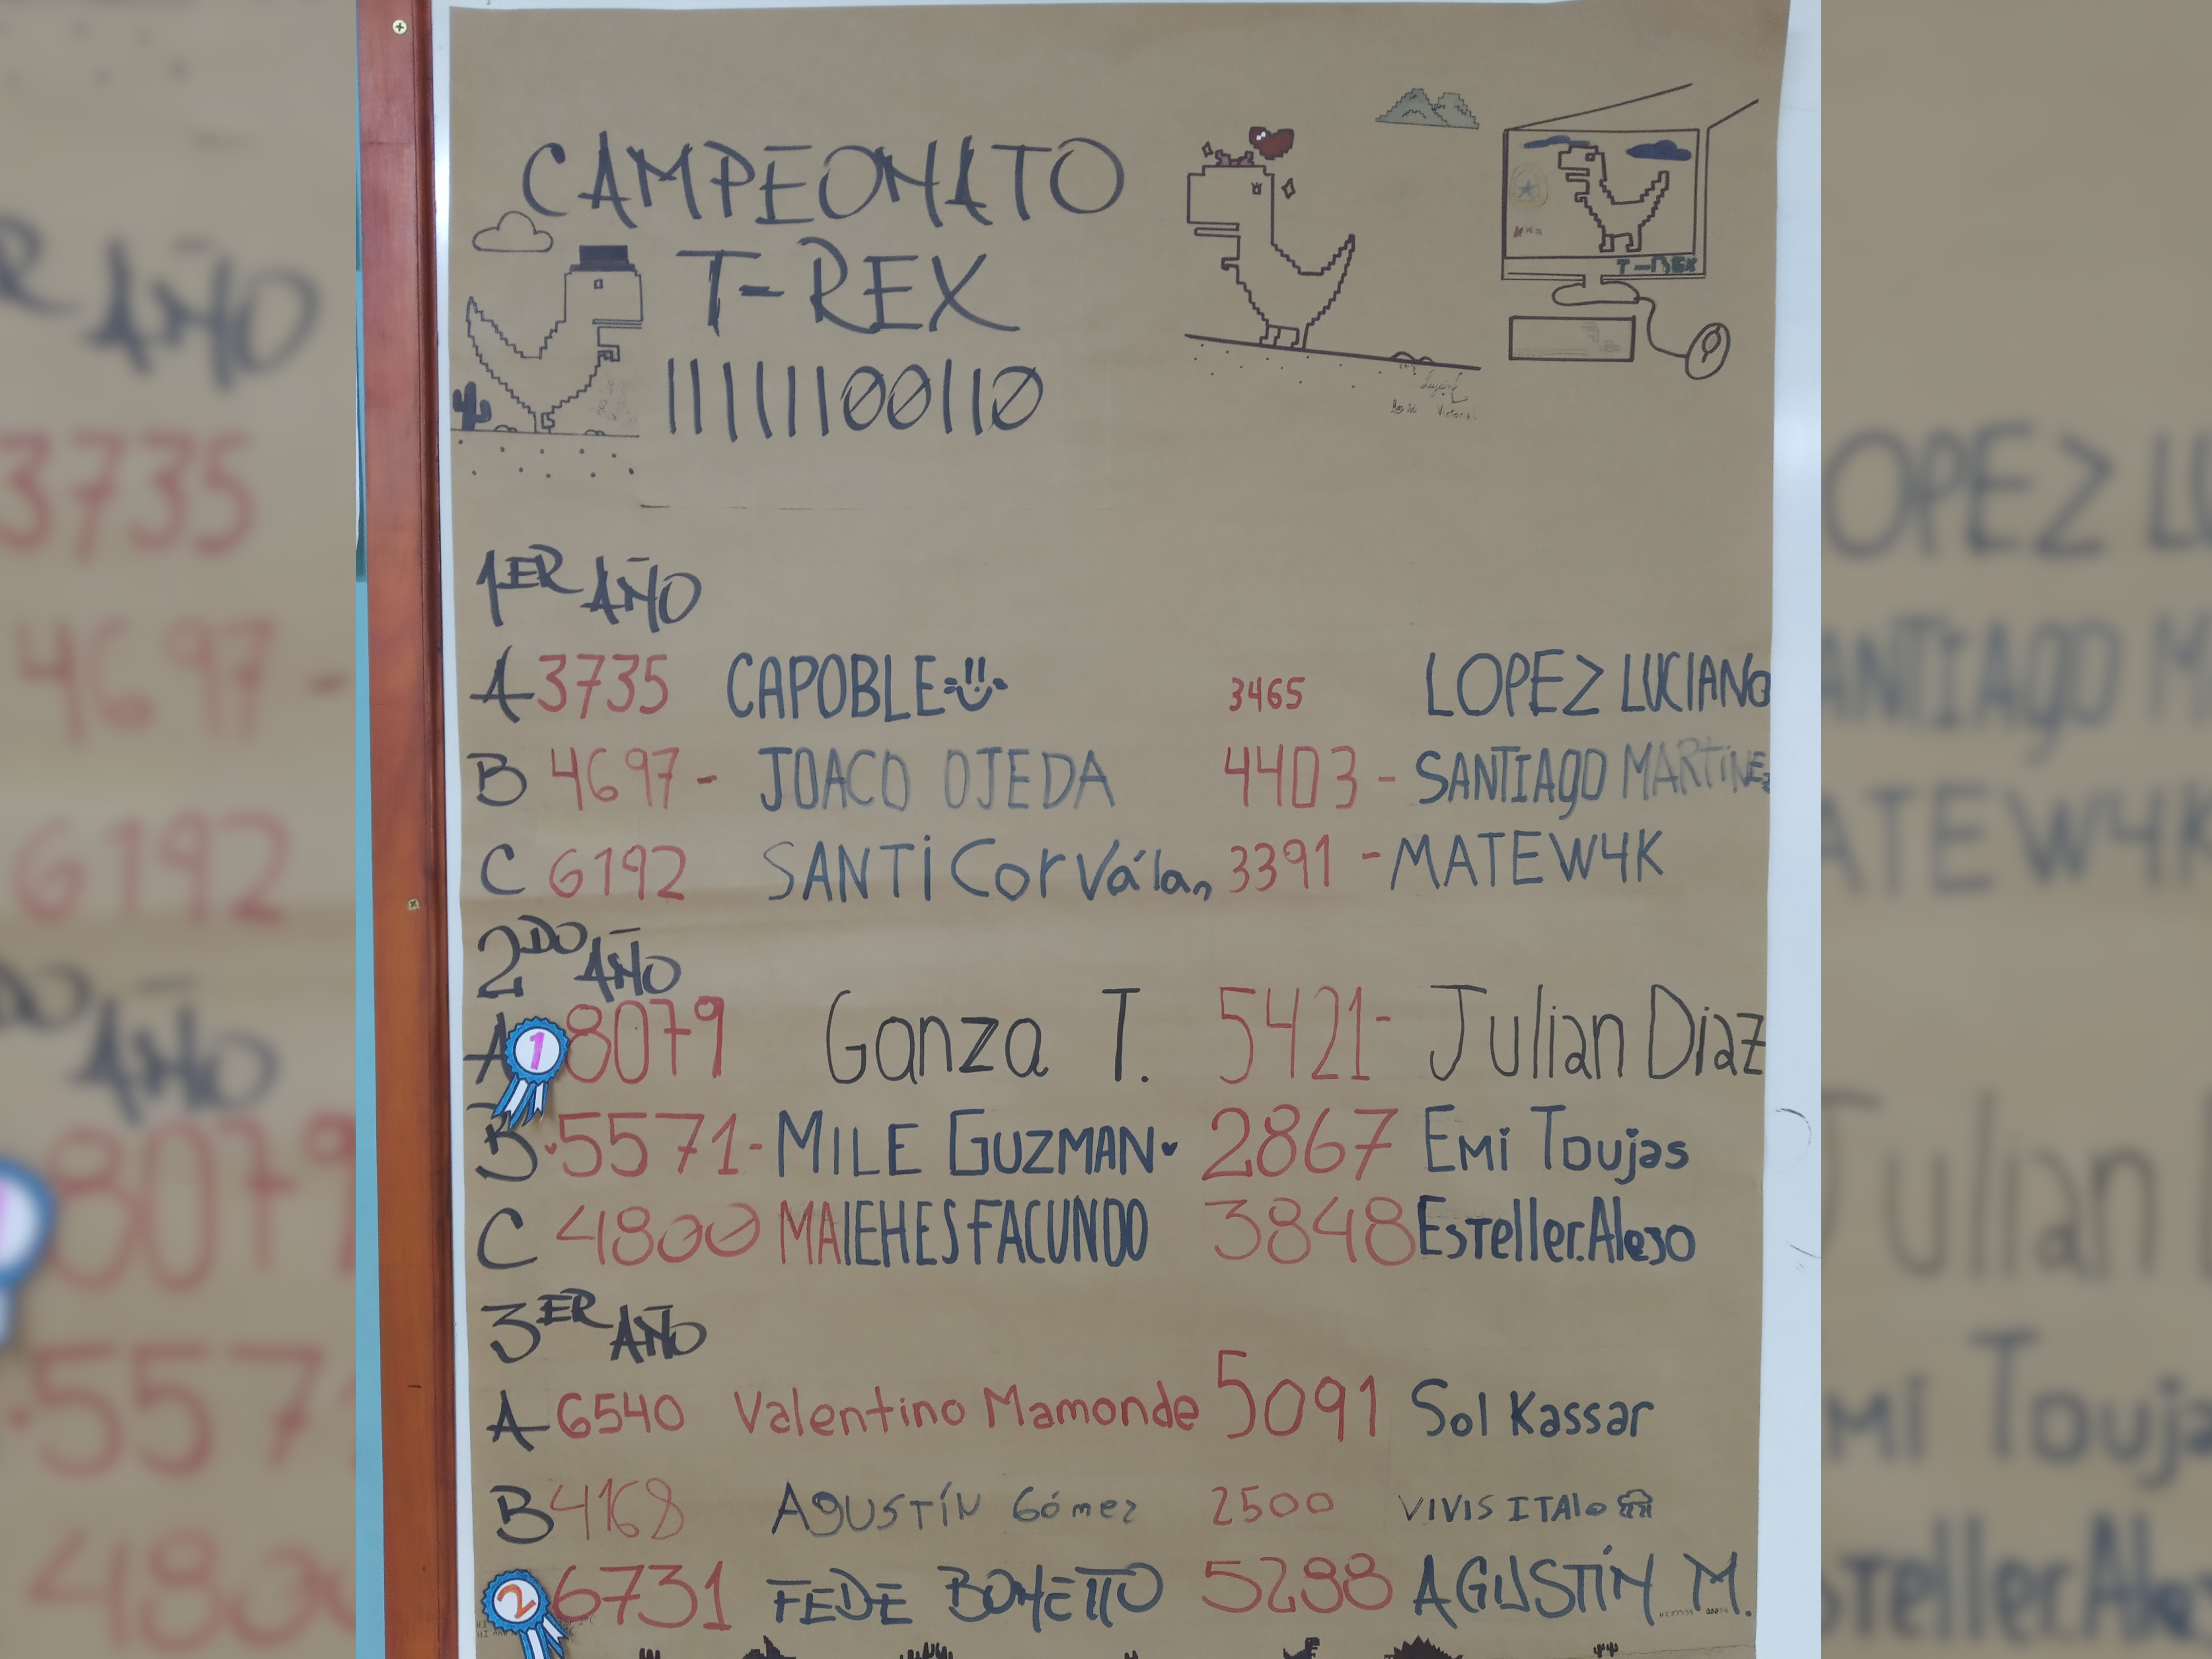 CAMPEONATO
T-REX
11111100110
T-REX
1ER AÑO
A 3735 CAPOBLE 3465 LOPEZ LUCIANO
B 4697 - JOACO OJEDA 4403 - SANTIAGO MARTINEZ
C 6192 SANTI Corválan 3391 - MATEW4K
2DO AÑO
A 1 8079 Gonza T. 5421- Julian Diaz
B 5571- MILE GUZMAN 2867 EMi Toujas
C 4800 MAIEHES FACUNDO 3848 ESTeller.Alejo
3ER AÑO
A 6540 Valentino Mamonde 5091 Sol Kassar
B 4168 AGUSTÍN Gómez 2500 VIVIS ITAlo
2 6731 FEDE BONETTO 5288 AGUSTÍN M.